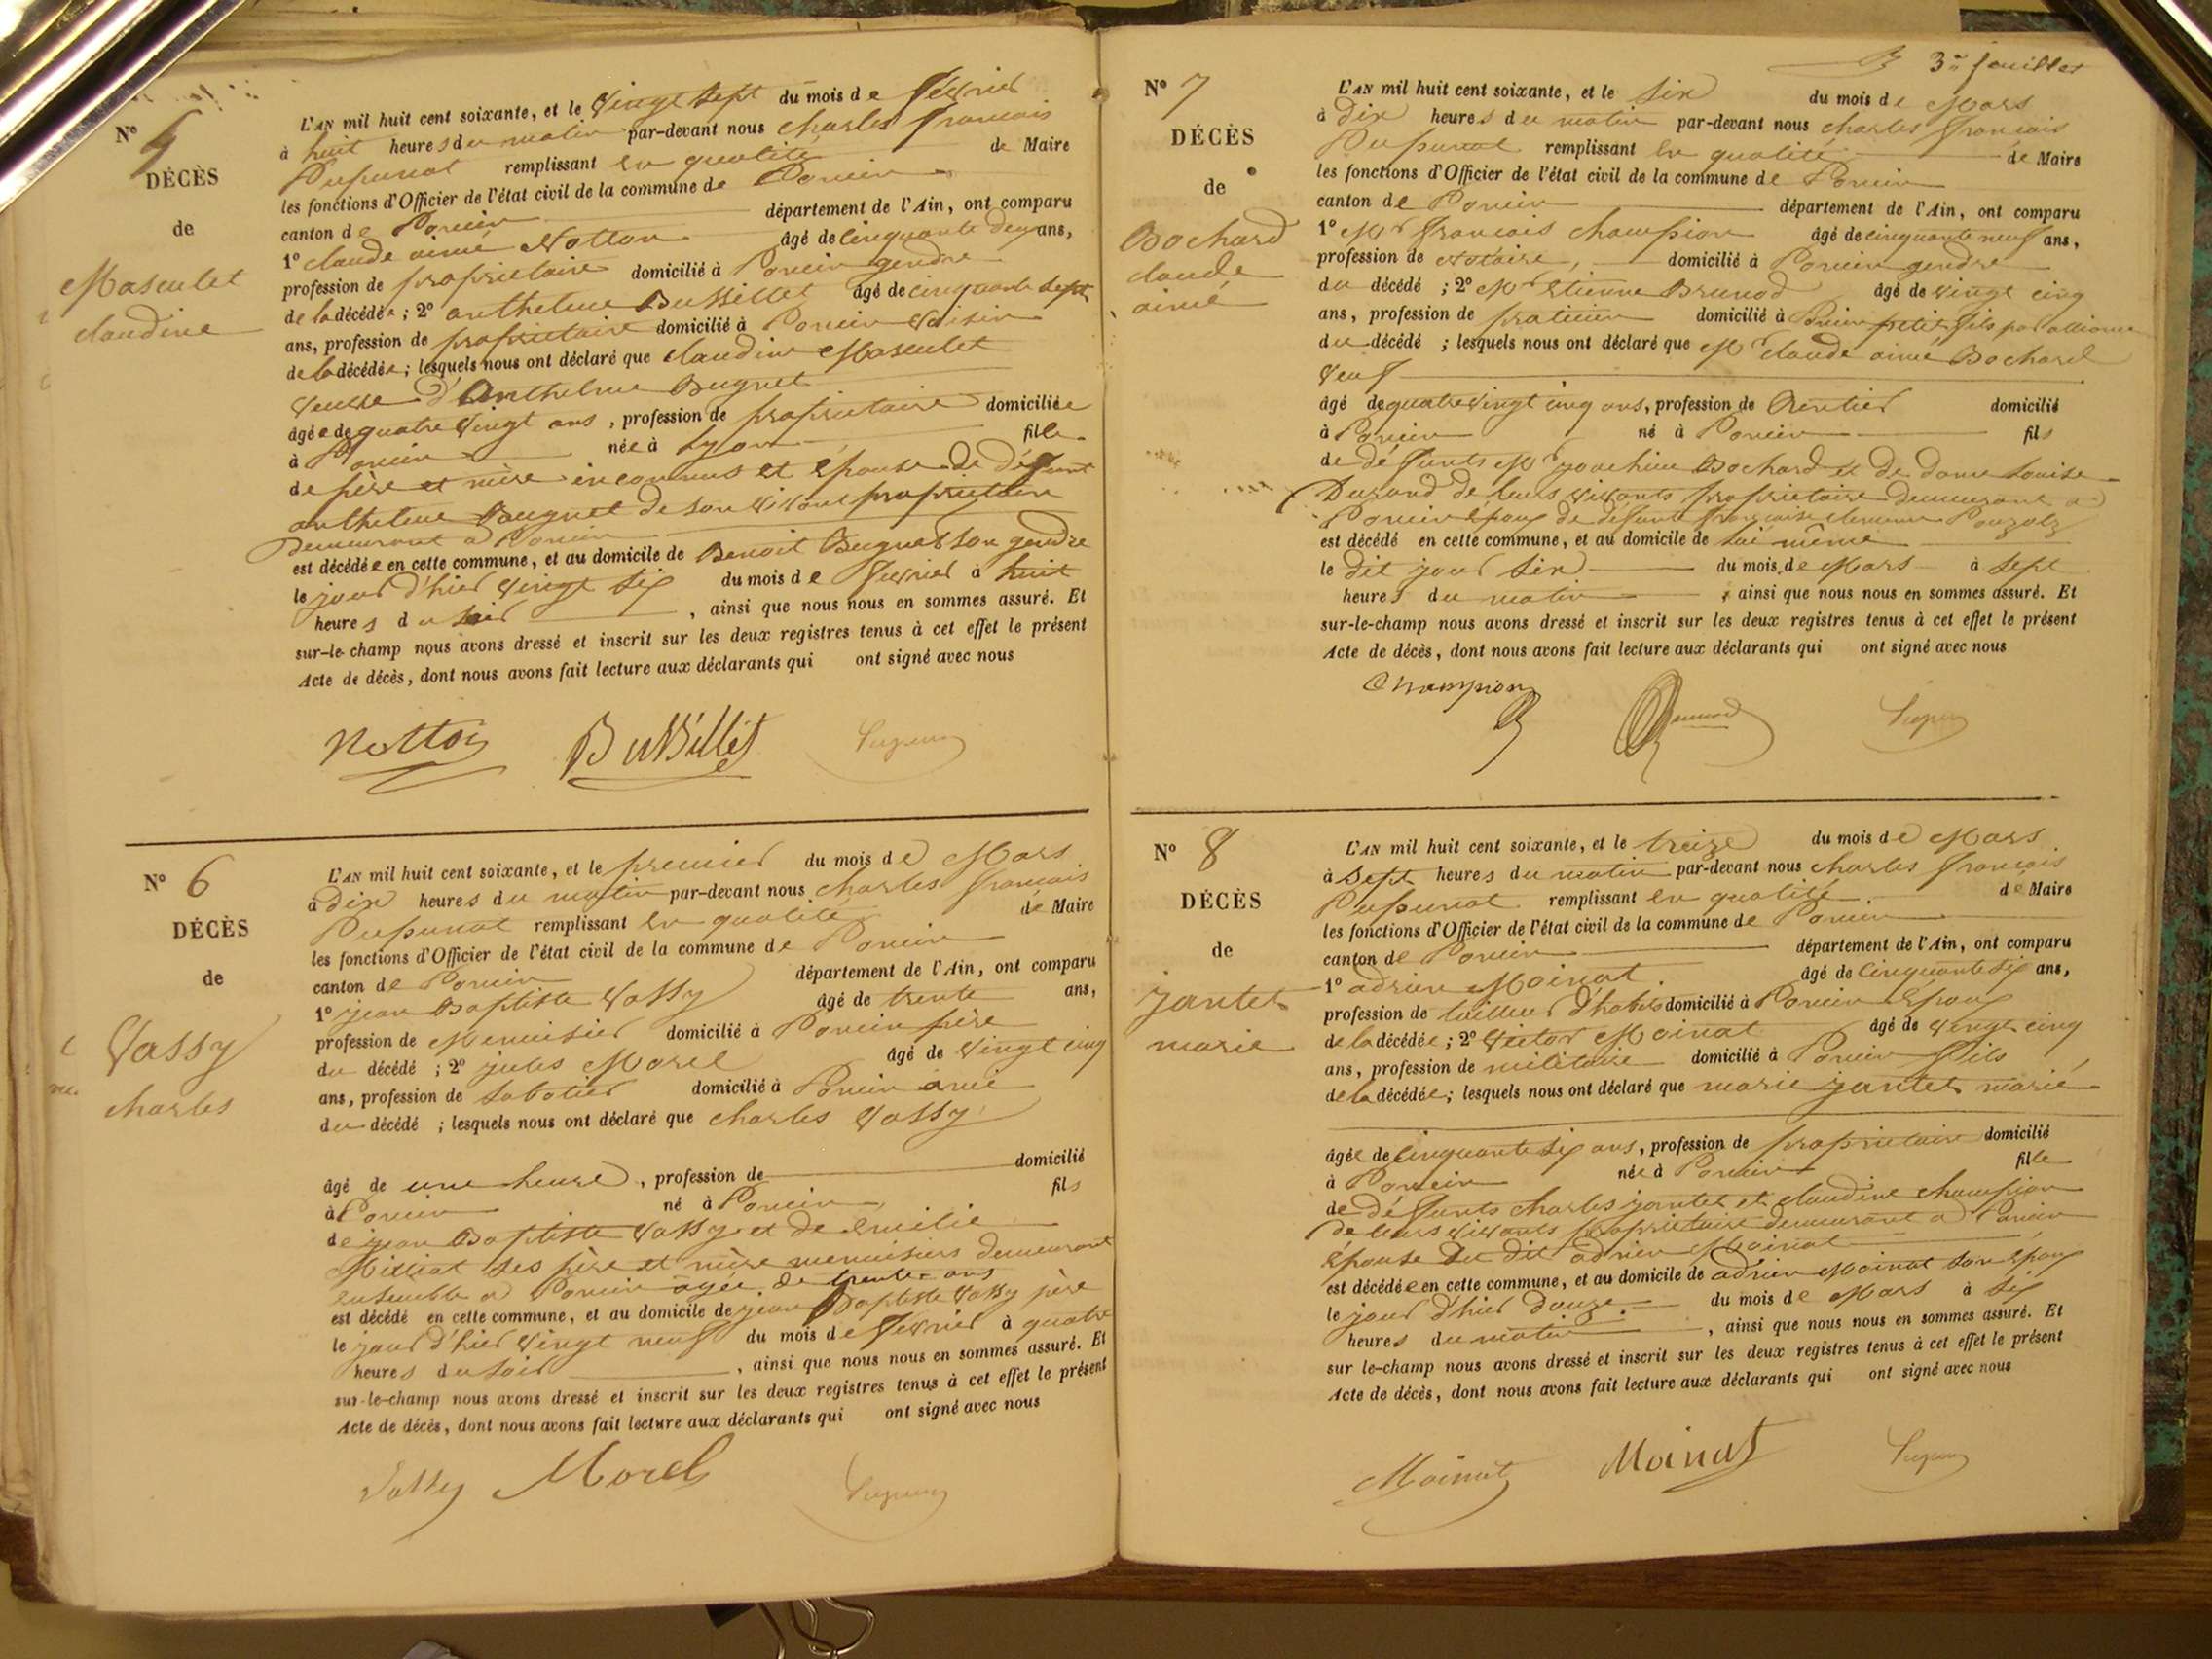 N° 5
DÉCÈS
de
Masculet
claudine
L'AN mil huit cent soixante, et le vingt sept du mois de février
à huit heures du matin par-devant nous charles francois
Pupunat remplissant en qualité de Maire
les fonctions d'Officier de l'état civil de la commune de Poncin
canton de Poncin département de l'Ain, ont comparu
1° claude aimé Notton âgé de cinquante deux ans,
profession de proprietaire domicilié à Poncin gendre
de la décédée ; 2° anthelme Bussillet âgé de cinquante sept
ans, profession de proprietaire domicilié à Poncin voisin
de la décédée ; lesquels nous ont déclaré que claudine Masculet
veuve d'anthelme Bugnet
âgée de quatre vingt ans, profession de proprietaire domiciliée
à Poncin née à Lyon fille
de père et mère inconnus et épouse de défunt
anthelme Bugnet de son vivant proprietaire
demeurant a Poncin
est décédée en cette commune, et au domicile de Benoit Bugnet son gendre
le jour d'hier vingt six du mois de février à huit
heures du soir, ainsi que nous nous en sommes assuré. Et
sur-le-champ nous avons dressé et inscrit sur les deux registres tenus à cet effet le présent
Acte de décès, dont nous avons fait lecture aux déclarants qui ont signé avec nous
Notton Bussillet Pupunat
N° 6
DÉCÈS
de
Vassy
charles
L'AN mil huit cent soixante, et le premier du mois de Mars
à dix heures du matin par-devant nous charles francois
Pupunat remplissant en qualité de Maire
les fonctions d'Officier de l'état civil de la commune de Poncin
canton de Poncin département de l'Ain, ont comparu
1° jean Baptiste Vassy âgé de trente ans,
profession de Menuisier domicilié à Poncin père
du décédé ; 2° jules Morel âgé de vingt cinq
ans, profession de sabotier domicilié à Poncin ami
du décédé ; lesquels nous ont déclaré que charles Vassy
âgé de une heure, profession de domicilié
à Poncin né à Poncin fils
de jean Baptiste Vassy et de emilie
Milliat ses père et mère menuisiers demeurant
ensemble a Poncin agée de trente ans
est décédé en cette commune, et au domicile de jean Baptiste Vassy père
le jour d'hier vingt neuf du mois de février à quatre
heures du soir, ainsi que nous nous en sommes assuré. Et
sur-le-champ nous avons dressé et inscrit sur les deux registres tenus à cet effet le présent
Acte de décès, dont nous avons fait lecture aux déclarants qui ont signé avec nous
Vassy Morel Pupunat
3me feuillet
N° 7
DÉCÈS
de
Bochard
claude
aimé
L'AN mil huit cent soixante, et le six du mois de Mars
à dix heures du matin par-devant nous charles francois
Pupunat remplissant en qualité de Maire
les fonctions d'Officier de l'état civil de la commune de Poncin
canton de Poncin département de l'Ain, ont comparu
1° Mr francois champion âgé de cinquante neuf ans,
profession de Notaire, domicilié à Poncin gendre
du décédé ; 2° Mr Etienne Brunod âgé de vingt cinq
ans, profession de praticien domicilié à Poncin petit fils par alliance
du décédé ; lesquels nous ont déclaré que Mr claude aimé Bochard
veuf
âgé de quatre vingt cinq ans, profession de Rentier domicilié
à Poncin né à Poncin fils
de défunts Mr joachim Bochard et de dame Louise
Durand de leurs vivants proprietaire demeurant a
Poncin époux de défunte françoise clemence Pouzolz
est décédé en cette commune, et au domicile de lui même
le dit jour six du mois de Mars à sept
heures du matin, ainsi que nous nous en sommes assuré. Et
sur-le-champ nous avons dressé et inscrit sur les deux registres tenus à cet effet le présent
Acte de décès, dont nous avons fait lecture aux déclarants qui ont signé avec nous
Champion Brunod Pupunat
N° 8
DÉCÈS
de
jantet
marie
L'AN mil huit cent soixante, et le treize du mois de Mars
à sept heures du matin par-devant nous charles francois
Pupunat remplissant en qualité de Maire
les fonctions d'Officier de l'état civil de la commune de Poncin
canton de Poncin département de l'Ain, ont comparu
1° adrien Moinat âgé de cinquante six ans,
profession de tailleur d'habits domicilié à Poncin Époux
de la décédée ; 2° Victor Moinat âgé de vingt cinq
ans, profession de militaire domicilié à Poncin fils
de la décédée ; lesquels nous ont déclaré que marie jantet marié
âgée de cinquante six ans, profession de proprietaire domicilié
à Poncin née à Poncin fille
de défunts charles jantet et claudine champion
de leurs vivants proprietaire demeurant a Poncin
épouse du dit adrien Moinat
est décédée en cette commune, et au domicile de adrien Moinat son époux
le jour d'hier douze du mois de Mars à six
heures du matin, ainsi que nous nous en sommes assuré. Et
sur le-champ nous avons dressé et inscrit sur les deux registres tenus à cet effet le présent
Acte de décès, dont nous avons fait lecture aux déclarants qui ont signé avec nous
Moinat Moinat Pupunat